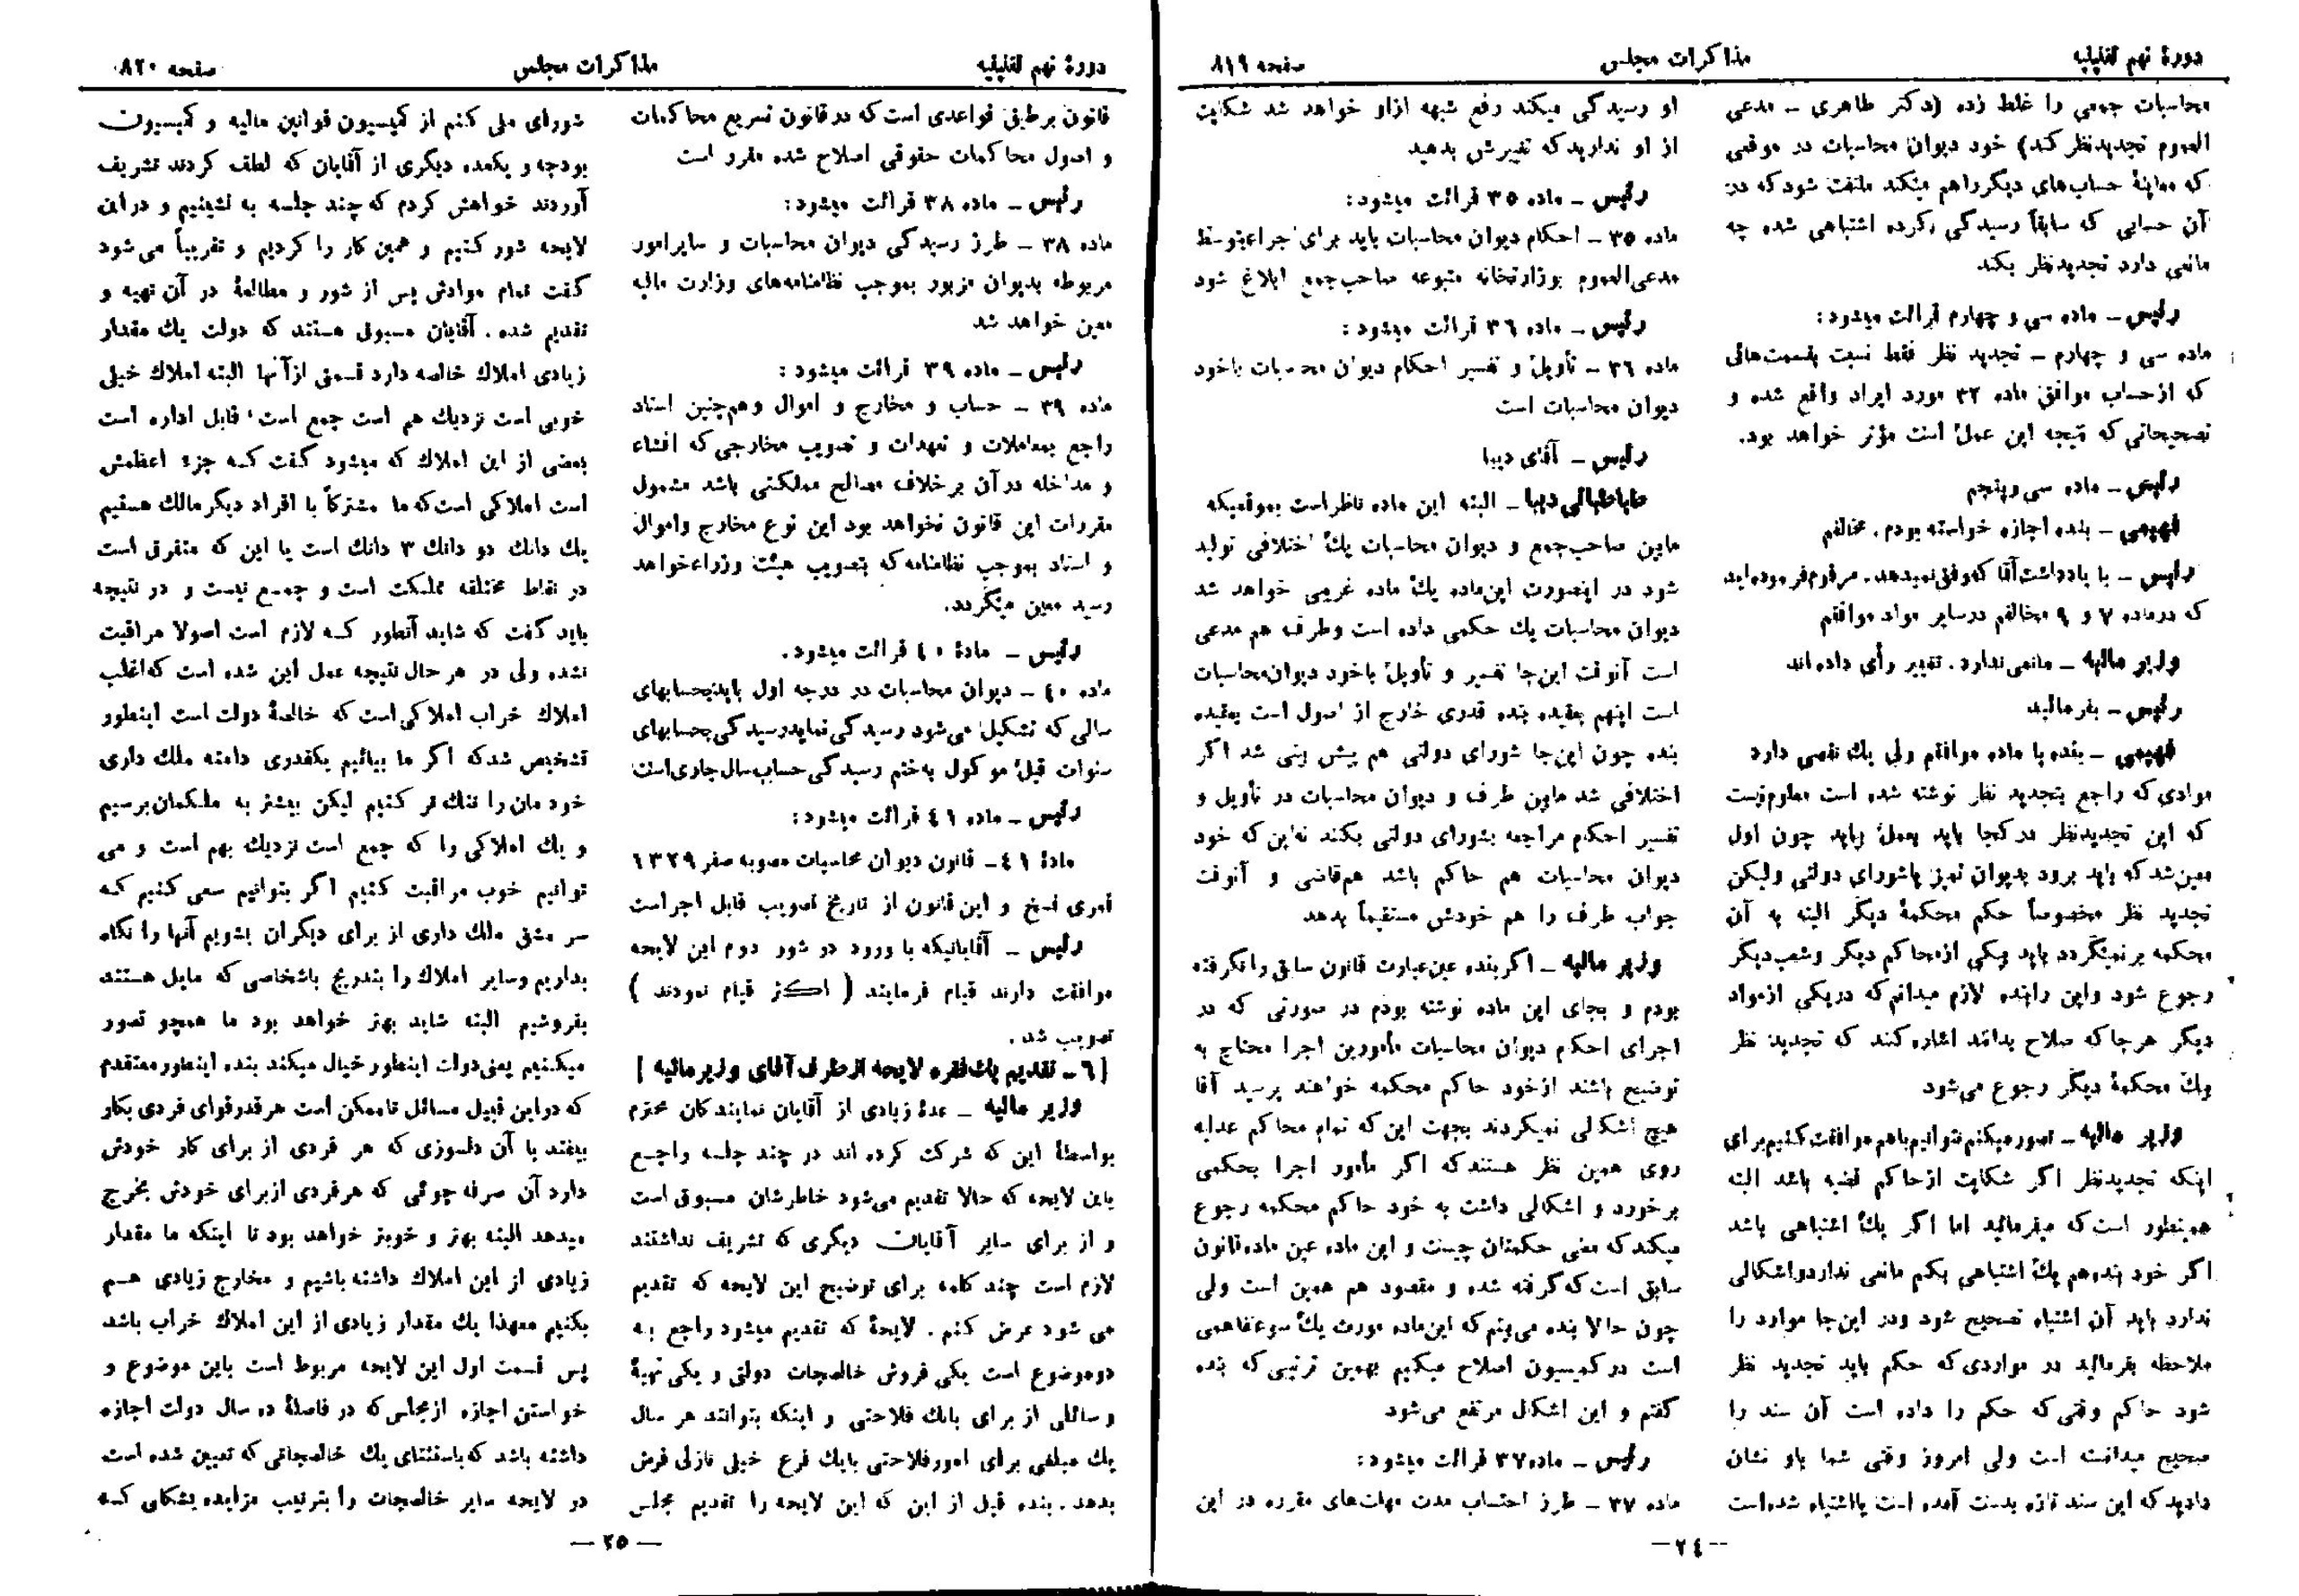 دورهٔ نهم تقنینیه
مذاکرات مجلس
صفحه ۸۱۹
محاسبات جمعی را غلط زده (دکتر طاهری - مدعی
العموم تجدیدنظر کند) خود دیوان محاسبات در موقعی
که معاینهٔ حساب‌های دیگر راهم میکند ملتفت شود که در
آن حسابی که سابقاً رسیدگی کرده اشتباهی شده چه
مانعی دارد تجدیدنظر بکند
رئیس - ماده سی و چهارم قرائت میشود:
ماده سی و چهارم - تجدید نظر فقط نسبت بقسمت‌هائی
که از حساب موافق ماده ۳۲ مورد ایراد واقع شده و
تصحیحاتی که نتیجه این عمل است مؤثر خواهد بود.
رئیس - ماده سی و پنجم
فهیمی - بنده اجازه خواسته بودم. مخالفم
رئیس - با یادداشت آقا که وفق نمیدهد. مرقوم فرموده‌اید
که در ماده ۷ و ۹ مخالفم در سایر مواد موافقم
وزیر مالیه - مانعی ندارد. تغییر رأی داده‌اند
رئیس - بفرمائید
فهیمی - بنده با ماده موافقم ولی یك نقصی دارد
موادی که راجع بتجدید نظر نوشته شده است معلوم نیست
که این تجدیدنظر در کجا باید بعمل بیاید چون اول
معین شد که باید برود بدیوان تمیز یا شورای دولتی ولیکن
تجدید نظر مخصوصاً حکم محکمهٔ دیگر البته به آن
محکمه بر نمیگردد باید بیکی از محاکم دیگر و شعب دیگر
رجوع شود و این را بنده لازم میدانم که در یکی از مواد
دیگر هر جا که صلاح بدانند اشاره کنند که تجدید نظر
بیك محکمهٔ دیگر رجوع می‌شود
وزیر مالیه - تصور میکنم بتوانیم باهم موافقت کنیم برای
اینکه تجدیدنظر اگر شکایت از حاکم قضیه باشد البته
همینطور است که میفرمائید اما اگر یك اشتباهی باشد
اگر خود بنده هم یك اشتباهی بکنم مانعی ندارد و اشکالی
ندارد باید آن اشتباه تصحیح شود و در این‌جا موارد را
ملاحظه بفرمائید در مواردی که حکم باید تجدید نظر
شود حاکم وقتی که حکم را داده است آن سند را
صحیح میدانسته است ولی امروز وقتی شما باو نشان
دادید که این سند تازه بدست آمده است یا اشتباه شده است
او رسیدگی میکند رفع شبهه از او خواهد شد شکایت
از او ندارید که تغییرش بدهید
رئیس - ماده ۳۵ قرائت میشود:
ماده ۳۵ - احکام دیوان محاسبات باید برای اجراء بتوسط
مدعی‌العموم بوزارتخانه متبوعه صاحب‌جمع ابلاغ شود
رئیس - ماده ۳۶ قرائت میشود:
ماده ۳۶ - تأویل و تفسیر احکام دیوان محاسبات با خود
دیوان محاسبات است
رئیس - آقای دیبا
طباطبائی دیبا - البته این ماده ناظر است بموقعیکه
مابین صاحب‌جمع و دیوان محاسبات یك اختلافی تولید
شود در اینصورت این ماده یك ماده غریبی خواهد شد
دیوان محاسبات یك حکمی داده است و طرف هم مدعی
است آنوقت این‌جا تفسیر و تأویل با خود دیوان محاسبات
است اینهم بعقیده بنده قدری خارج از اصول است بعقیده
بنده چون این‌جا شورای دولتی هم پیش بینی شد اگر
اختلافی شد مابین طرف و دیوان محاسبات در تأویل و
تفسیر احکام مراجعه بشورای دولتی بکنند نه این که خود
دیوان محاسبات هم حاکم باشد هم قاضی و آنوقت
جواب طرف را هم خودش مستقیماً بدهد
وزیر مالیه - اگر بنده عین عبارت قانون سابق را نگرفته
بودم و بجای این ماده نوشته بودم در صورتی که در
اجرای احکام دیوان محاسبات مأمورین اجرا محتاج به
توضیح باشند از خود حاکم محکمه خواهند پرسید آقا
هیچ اشکالی نمیکردند بجهت این که تمام محاکم عدلیه
روی همین نظر هستند که اگر مأمور اجرا بحکمی
برخورد و اشکالی داشت به خود حاکم محکمه رجوع
میکند که معنی حکمتان چیست و این ماده عین ماده قانون
سابق است که گرفته شده و مقصود هم همین است ولی
چون حالا بنده می‌بینم که این ماده مورث یك سوءتفاهمی
است در کمیسیون اصلاح میکنیم بهمین ترتیبی که بنده
گفتم و این اشکال مرتفع می‌شود
رئیس - ماده ۳۷ قرائت میشود:
ماده ۳۷ - طرز احتساب مدت مهلت‌های مقرره در این
- ۲٤ -
دورهٔ نهم تقنینیه
مذاکرات مجلس
صفحه ۸۲۰
قانون بر طبق قواعدی است که در قانون تسریع محاکمات
و اصول محاکمات حقوقی اصلاح شده مقرر است
رئیس - ماده ۳۸ قرائت میشود:
ماده ۳۸ - طرز رسیدگی دیوان محاسبات و سایر امور
مربوطه بدیوان مزبور بموجب نظامنامه‌های وزارت مالیه
معین خواهد شد
رئیس - ماده ۳۹ قرائت میشود:
ماده ۳۹ - حساب و مخارج و اموال و همچنین اسناد
راجع بمعاملات و تعهدات و تصویب مخارجی که افشاء
و مداخله در آن برخلاف مصالح مملکتی باشد مشمول
مقررات این قانون نخواهد بود این نوع مخارج و اموال
و اسناد بموجب نظامنامه که بتصویب هیئت وزراء خواهد
رسید معین میگردد.
رئیس - مادهٔ ٤۰ قرائت میشود.
ماده ٤۰ - دیوان محاسبات در درجه اول باید بحسابهای
سالی که تشکیل می‌شود رسیدگی نماید رسیدگی بحسابهای
سنوات قبل موکول بختم رسیدگی حساب سال جاری است
رئیس - ماده ٤۱ قرائت میشود:
مادهٔ ٤۱ - قانون دیوان محاسبات مصوبه صفر ۱۳۲۹
قمری نسخ و این قانون از تاریخ تصویب قابل اجراست
رئیس - آقایانیکه با ورود در شور دوم این لایحه
موافقت دارند قیام فرمایند (اکثر قیام نمودند)
تصویب شد.
[۶ - تقدیم یك فقره لایحه از طرف آقای وزیر مالیه]
وزیر مالیه - عدهٔ زیادی از آقایان نمایندگان محترم
بواسطهٔ این که شرکت کرده اند در چند جلسه راجع
باین لایحه که حالا تقدیم می‌شود خاطرشان مسبوق است
و از برای سایر آقایان دیگری که تشریف نداشتند
لازم است چند کلمه برای توضیح این لایحه که تقدیم
می شود عرض کنم. لایحهٔ که تقدیم میشود راجع به
دو موضوع است یکی فروش خالصجات دولتی و یکی تهیهٔ
وسائلی از برای بانك فلاحتی و اینکه بتوانند هر سال
یك مبلغی برای امور فلاحتی بایك فرع خیلی نازلی قرض
بدهد. بنده قبل از این که این لایحه را تقدیم مجلس
شورای ملی کنم از کمیسیون قوانین مالیه و کمیسیون
بودجه و یکعده دیگری از آقایان که لطف کردند تشریف
آوردند خواهش کردم که چند جلسه به نشینیم و در این
لایحه شور کنیم و همین کار را کردیم و تقریباً می شود
گفت تمام موادش پس از شور و مطالعهٔ در آن تهیه و
تقدیم شده. آقایان مسبوق هستند که دولت یك مقدار
زیادی املاك خالصه دارد قسمتی از آنها البته املاك خیلی
خوبی است نزدیك هم است جمع است، قابل اداره است
بعضی از این املاك که میشود گفت که جزء اعظمش
است املاکی است که ما مشترکاً با افراد دیگر مالك هستیم
یك دانك دو دانك ۳ دانك است یا این که متفرق است
در نقاط مختلفه مملکت است و جمع نیست و در نتیجه
باید گفت که شاید آنطور که لازم است اصولا مراقبت
نشده ولی در هر حال نتیجه عمل این شده است که اغلب
املاك خراب املاکی است که خالصهٔ دولت است اینطور
تشخیص شد که اگر ما بیائیم یکقدری دامنه ملك داری
خودمان را تنك تر کنیم لیکن بیشتر به ملکمان برسیم
و یك املاکی را که جمع است نزدیك بهم است و می
توانیم خوب مراقبت کنیم اگر بتوانیم سعی کنیم که
سر مشق ملك داری از برای دیگران بشویم آنها را نگاه
بداریم و سایر املاك را بتدریج باشخاصی که مایل هستند
بفروشیم البته شاید بهتر خواهد بود ما همچو تصور
میکنیم یعنی دولت اینطور خیال میکند بنده اینطور معتقدم
که در این قبیل مسائل تا ممکن است هر قدر قوای فردی بکار
بیفتد با آن دلسوزی که هر فردی از برای کار خودش
دارد آن صرفه جوئی که هر فردی از برای خودش بخرج
میدهد البته بهتر و خوبتر خواهد بود تا اینکه ما مقدار
زیادی از این املاك داشته باشیم و مخارج زیادی هم
بکنیم معهذا یك مقدار زیادی از این املاك خراب باشد
پس قسمت اول این لایحه مربوط است باین موضوع و
خواستن اجازه از مجلس که در فاصلهٔ ده سال دولت اجازه
داشته باشد که باستثنای یك خالصجاتی که تعیین شده است
در لایحه سایر خالصجات را بترتیب مزایده بشکلی که
- ۲۵ -